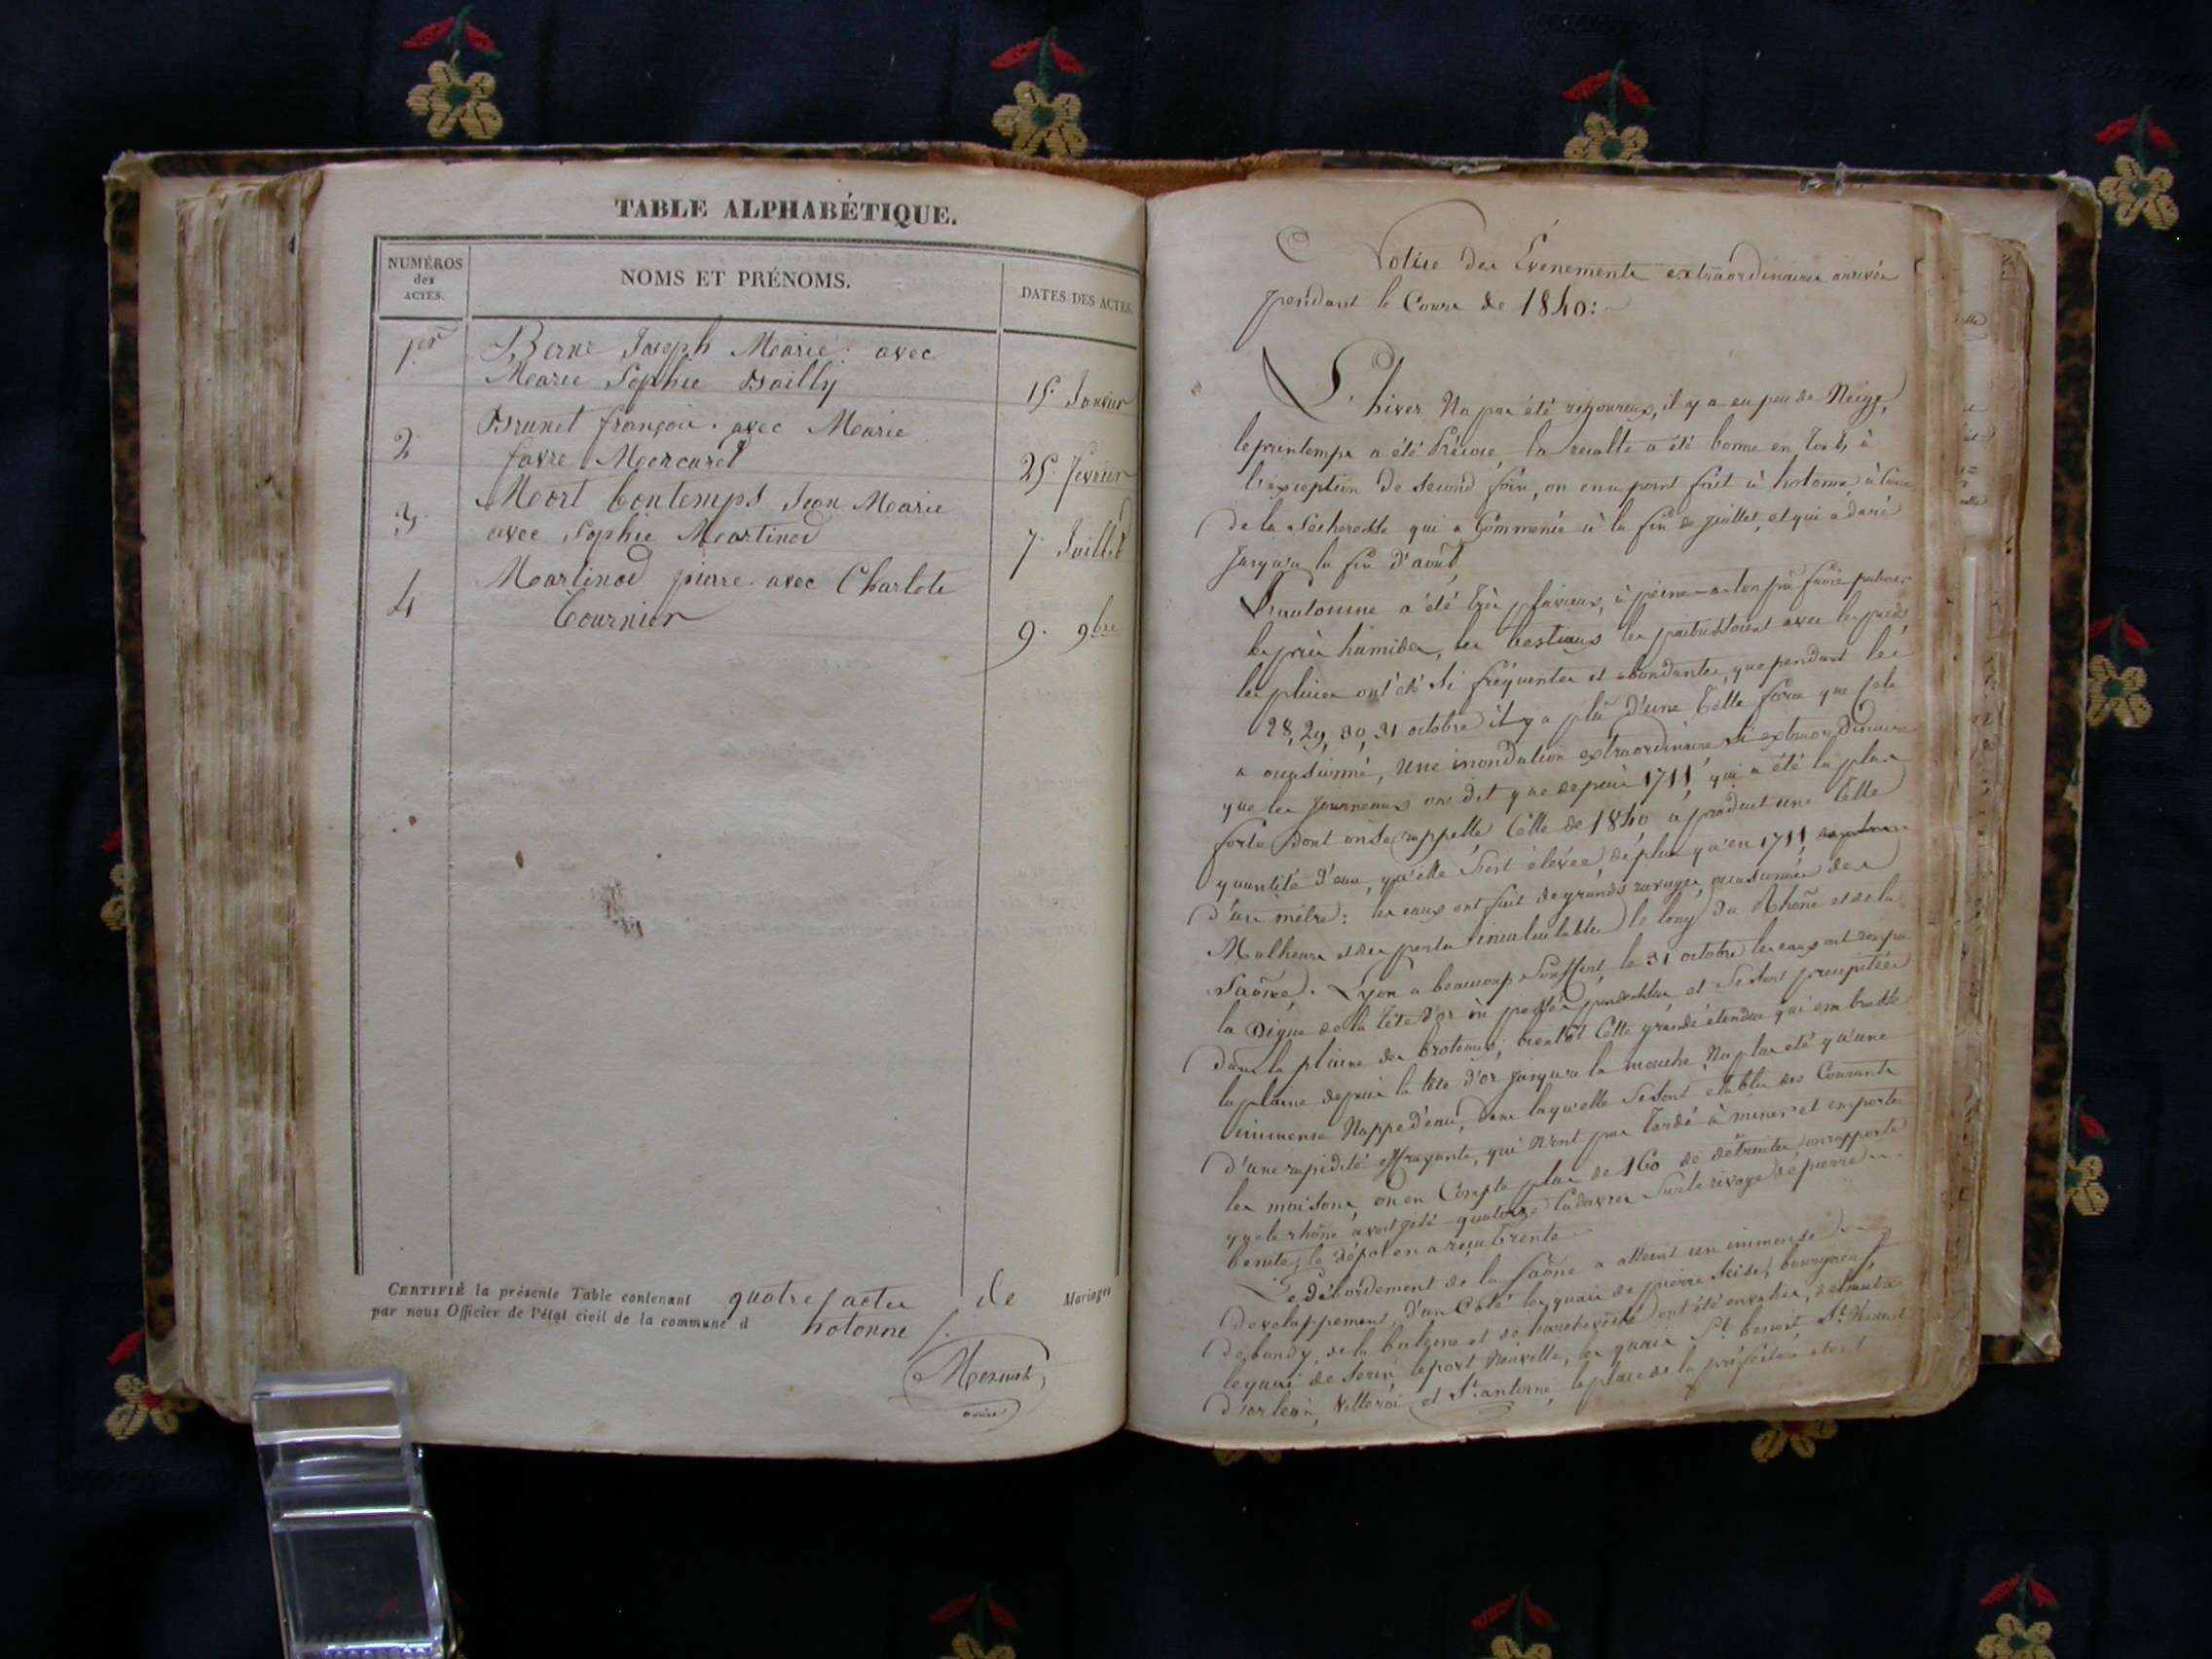 TABLE ALPHABÉTIQUE.
NUMÉROS
des
ACTES.
NOMS ET PRÉNOMS.
DATES DES ACTES.
1.er
Berne Joseph Marie. avec
Marie Sophie Bailly
15. Janvier
2
Brunet françois. avec Marie
favre Mercuret
25. fevrier
3
Mort Contemps Jean Marie
avec Sophie Martinod
7. Juillet
4
Martinod pierre. avec Charlote
Tournier
9. 9bre
CERTIFIÉ la présente Table contenant quatre actes de Mariages
par nous Officier de l'état civil de la commune d hotonne
maire
Notice des Événements extraordinaires arrivés
pendant le Cours de 1840:
L'hiver Na pas été rigoureux, il y a eu peu de Neige,
le printemps a été Précoce, la recolte a été bonne en tout, à
l'exception de second foin, on en a point fait à hotonne à Cause
de la Sécheresse qui a Commencé à la fin de juillet, et qui a duré
jusqu'a la fin d'août,
L'automne a été très pluvieux, à peine a-t-on pu faire paturer
les près humides, les bestiaux les paitrissoient avec les pieds,
les pluies ont été si fréquentes et abondantes, que pendant les
28, 29, 30, 31 octobre il y a plu d'une telle force que cela
a occasionné, Une inondation extraordinaire si extraordinaire
que les journeaux on dit que depuis 1711, qui a été la plus
forte dont on se rappelle Celle de 1840 a produit une telle
quantité d'eau, qu'elle s'est élevée de plus qu'en 1711
d'un mètre: les eaux ont fait de grands ravages, occasionnés des
Malheurs et des pertes incalculables le long du Rhône et de la
Saône. Lyon a beaucoup Souffert, le 31 octobre les eaux ont rompu
la Digue de la Tête d'or et se sont precipitées
dans la plaine des broteaux; bientôt Cette grande étendue qui embrasse
la plaine depuis la tête d'or jusqu'a la mouche, Na plus été qu'une
immense Nappe d'eau, dans laquelle Se sont etablis des Courants
d'une rapidité effrayante, qui N'ont pas tardé à miner et emporter
les maisons, on en Compte plus de 160 de détruites, on rapporte
que le rhône avoit jeté quatorze Cadavres Sur le rivage de pierre
benite, le dépot en a reçu trente
Le débordement de la Saône a atteint un immense
developpement, d'un Coté les quais de pierre Scise, bourgneuf,
de bondy, de la baleine et de l'archevêché ont été envahis, de l'autre
le quai de Serin, le port Neuville, les quais St. benoit, St. Vincent
d'orleans, Villeroi et St. antoine, la place de la préfecture etoit